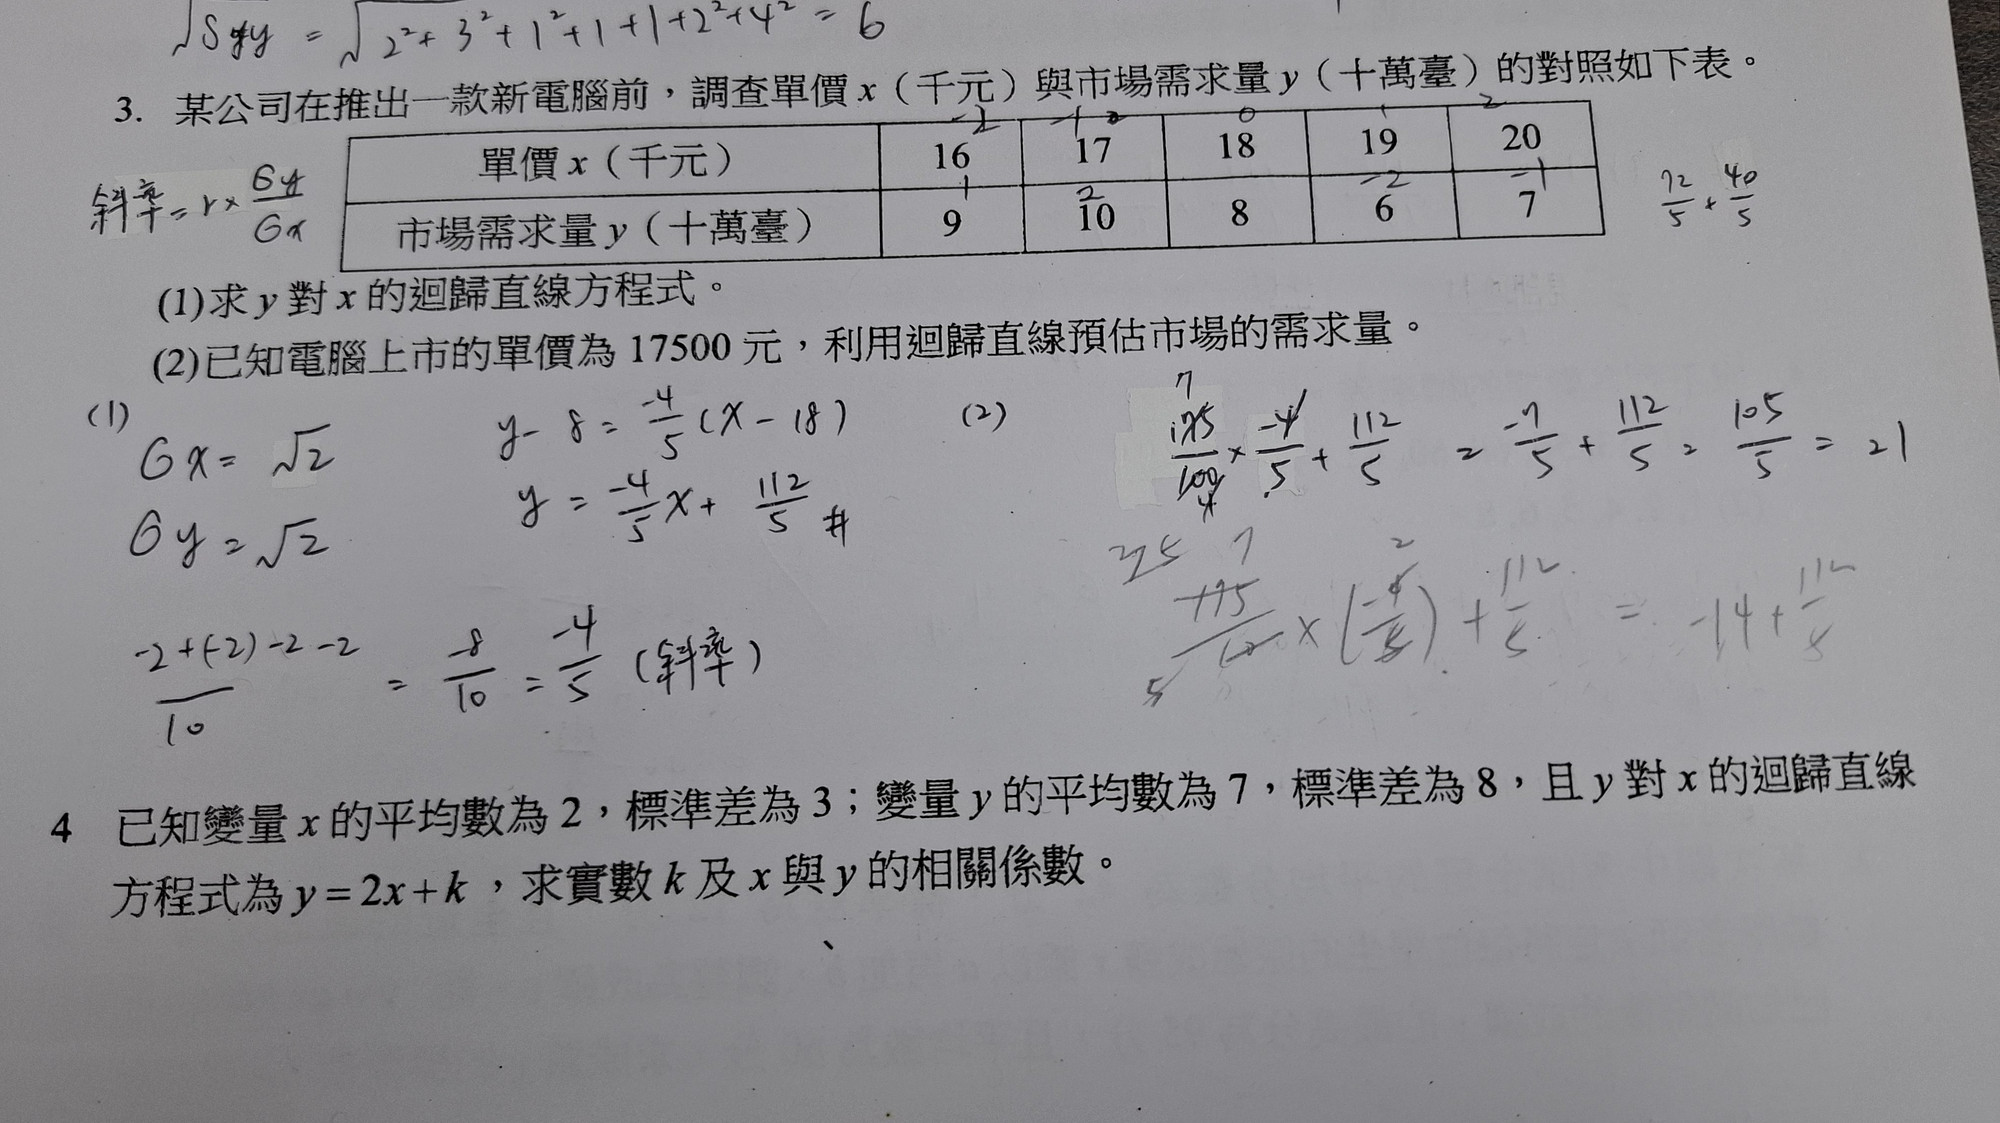 √Syy = √2²+3²+1²+1+1+2²+4² = 6
3. 某公司在推出一款新電腦前，調查單價 x（千元）與市場需求量 y（十萬臺）的對照如下表。
-2 -1 0 1 2
單價 x（千元） 16 17 18 19 20
1 2 -2 -1
市場需求量 y（十萬臺） 9 10 8 6 7
斜率 = r × σy/σx
72/5 + 40/5
(1)求 y 對 x 的迴歸直線方程式。
(2)已知電腦上市的單價為 17500 元，利用迴歸直線預估市場的需求量。
(1)
σx = √2
σy = √2
y - 8 = -4/5 (x - 18)
y = -4/5 x + 112/5 #
-2+(-2)-2-2/10 = -8/10 = -4/5 (斜率)
(2)
7
175/100 × -4/5 + 112/5 = -7/5 + 112/5 = 105/5 = 21
35 7 2
175/10 × (-4/5) + 112/5 = -14 + 112/5
5
4 已知變量 x 的平均數為 2，標準差為 3；變量 y 的平均數為 7，標準差為 8，且 y 對 x 的迴歸直線
方程式為 y = 2x + k，求實數 k 及 x 與 y 的相關係數。